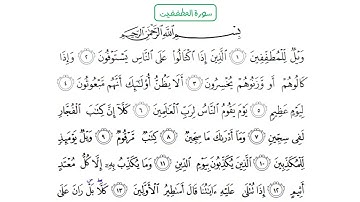 سورة المطففين
بِسْمِ اللَّهِ الرَّحْمَٰنِ الرَّحِيمِ
وَيْلٌ لِّلْمُطَفِّفِينَ ١ الَّذِينَ إِذَا اكْتَالُوا عَلَى النَّاسِ يَسْتَوْفُونَ ٢ وَإِذَا
كَالُوهُمْ أَو وَّزَنُوهُمْ يُخْسِرُونَ ٣ أَلَا يَظُنُّ أُولَٰئِكَ أَنَّهُم مَّبْعُوثُونَ ٤
لِيَوْمٍ عَظِيمٍ ٥ يَوْمَ يَقُومُ النَّاسُ لِرَبِّ الْعَالَمِينَ ٦ كَلَّا إِنَّ كِتَابَ الْفُجَّارِ
لَفِي سِجِّينٍ ٧ وَمَا أَدْرَاكَ مَا سِجِّينٌ ٨ كِتَابٌ مَّرْقُومٌ ٩ وَيْلٌ يَوْمَئِذٍ
لِّلْمُكَذِّبِينَ ١٠ الَّذِينَ يُكَذِّبُونَ بِيَوْمِ الدِّينِ ١١ وَمَا يُكَذِّبُ بِهِ إِلَّا كُلُّ مُعْتَدٍ
أَثِيمٍ ١٢ إِذَا تُتْلَىٰ عَلَيْهِ آيَاتُنَا قَالَ أَسَاطِيرُ الْأَوَّلِينَ ١٣ كَلَّا بَلْ رَانَ عَلَىٰ